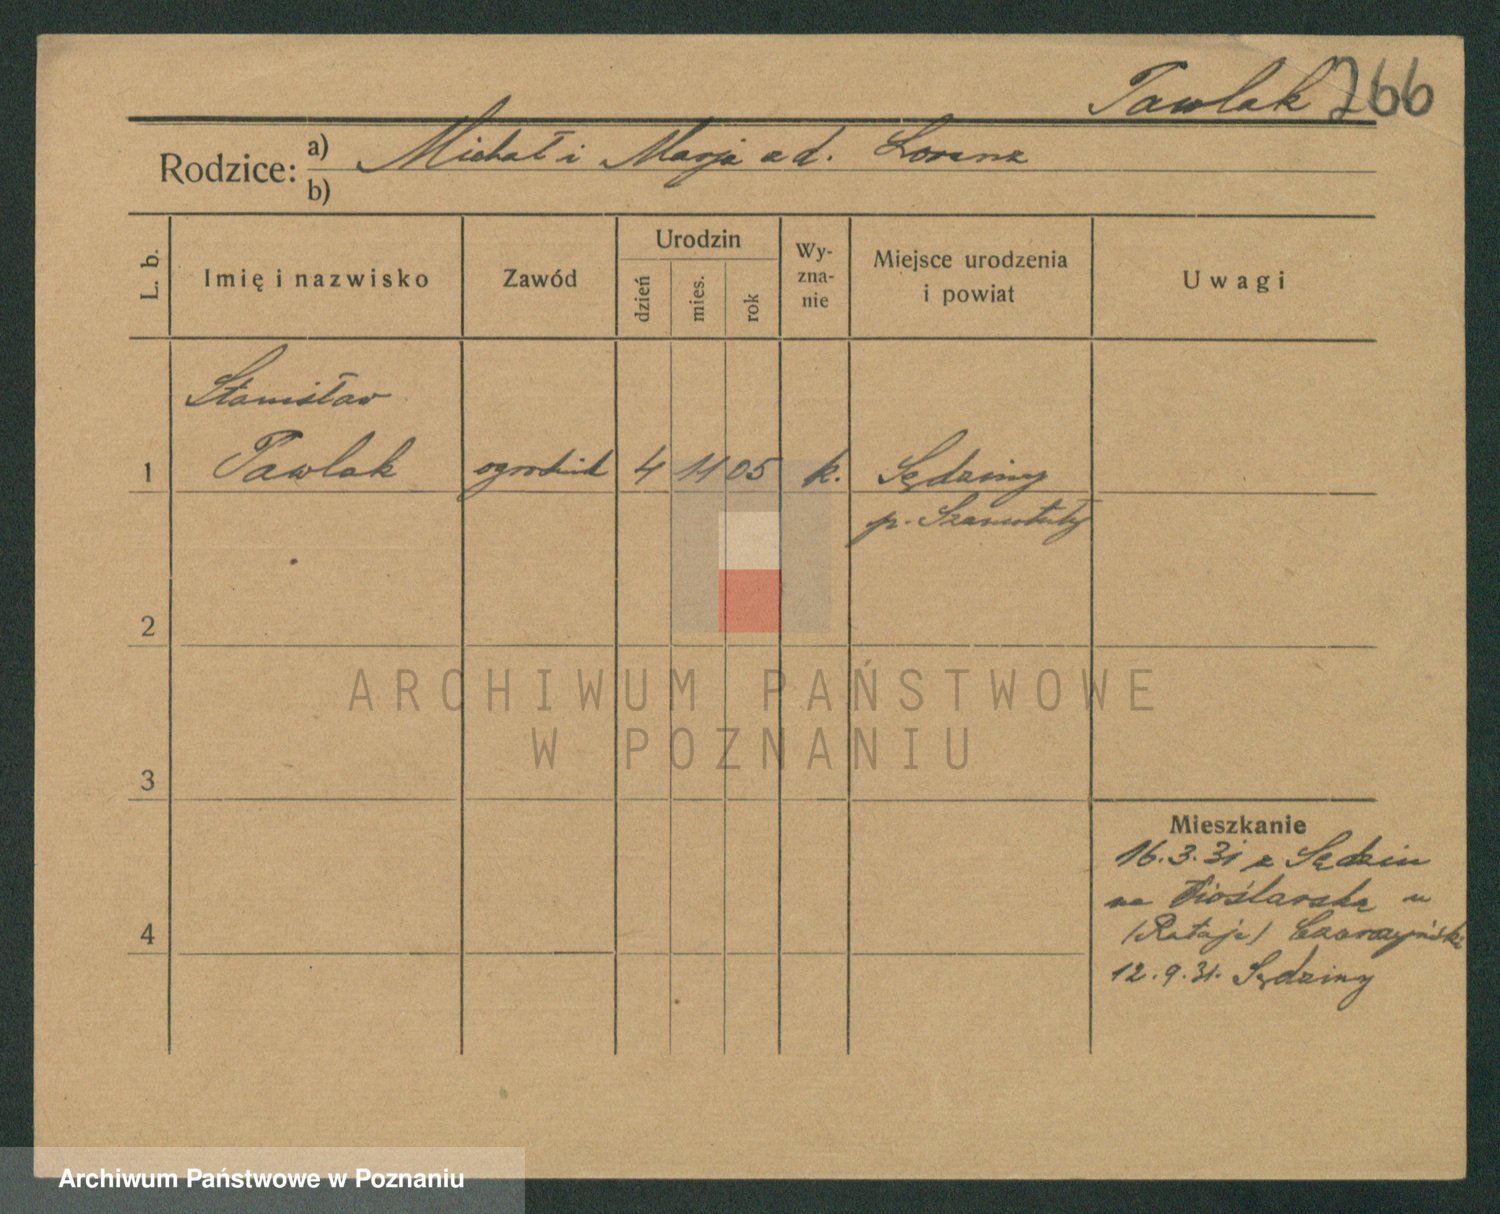 Pawlak 766
Rodzice: a) Michał i Marja z d. Lorenz
b)
L. b.
Imię i nazwisko
Zawód
Urodzin
dzień
mies.
rok
Wy-
zna-
nie
Miejsce urodzenia
i powiat
Uwagi
Stanisław
1 Pawlak ogrodnik 4 11 05 k. Sędziny
p. Szamotuły
2
3
4
Mieszkanie
16.3.31 z Sędzin
na
(Rataje)
12.9.31. Sędziny
ARCHIWUM PAŃSTWOWE
W POZNANIU
Archiwum Państwowe w Poznaniu